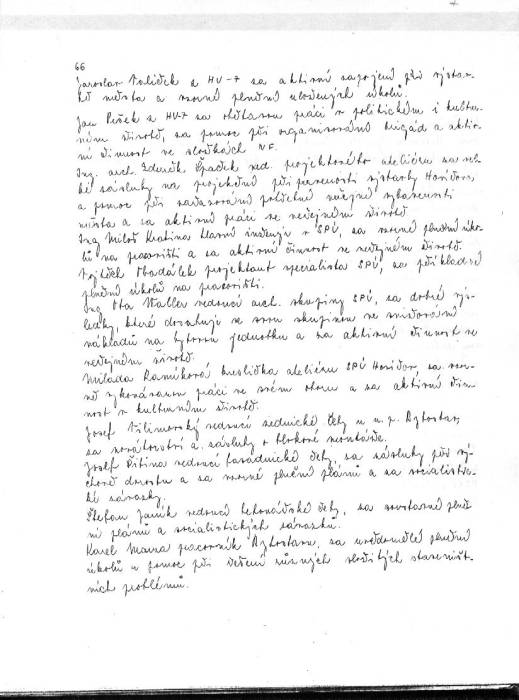 66
Jaroslav Volíček z HV-7 za aktivní zapojení při výstav-
bě města a vzorné plnění uložených úkolů.
Jan Pešek z HV-7 za obětavou práci v politickém i kultur-
ním životě, za pomoc při organizování brigád a aktiv-
ní činnost ve složkách NF.
Ing. arch. Zdeněk Špaček ved. projektového atelieru za vel-
ké zásluhy na projekční připravenosti výstavby Havířova,
a pomoc při zajišťování potřebné vybavenosti
města a za aktivní práci ve veřejném životě.
Ing Miloš Kvatina hlavní inženýr v SPÚ, za vzorné plnění úko-
lů na pracovišti a za aktivní činnost ve veřejném životě.
Vojtěch projektant specialista SPÚ, za příkladné
plnění úkolů na pracovišti.
Ing Ota Waller vedoucí arch. skupiny SPÚ, za dobré vý-
sledky, které dosahuje se svou skupinou ve snižování
nákladů na bytovou jednotku a za aktivní činnost ve
veřejném životě.
Milada Kamíková kreslička atelieru SPÚ Havířov, za vzor-
ně vykonávanou práci ve svém oboru a za aktivní čin-
nost v kulturním životě.
Josef vedoucí zednické čety n. p. Bytostav,
za novátorství a zásluhy o blokové montáže.
Josef Pitina vedoucí fasádnické čety, za zásluhy při vý-
chově dorostu a za vzorné plnění plánů a za socialistic-
ké závazky.
Štefan Janík vedoucí betonářské čety, za soustavné plně-
ní plánů a socialistických závazků.
Karel pracovník Bytostavu, za uvědomělé plnění
úkolů a pomoc při řešení různých složitých staveništ-
ních problémů.